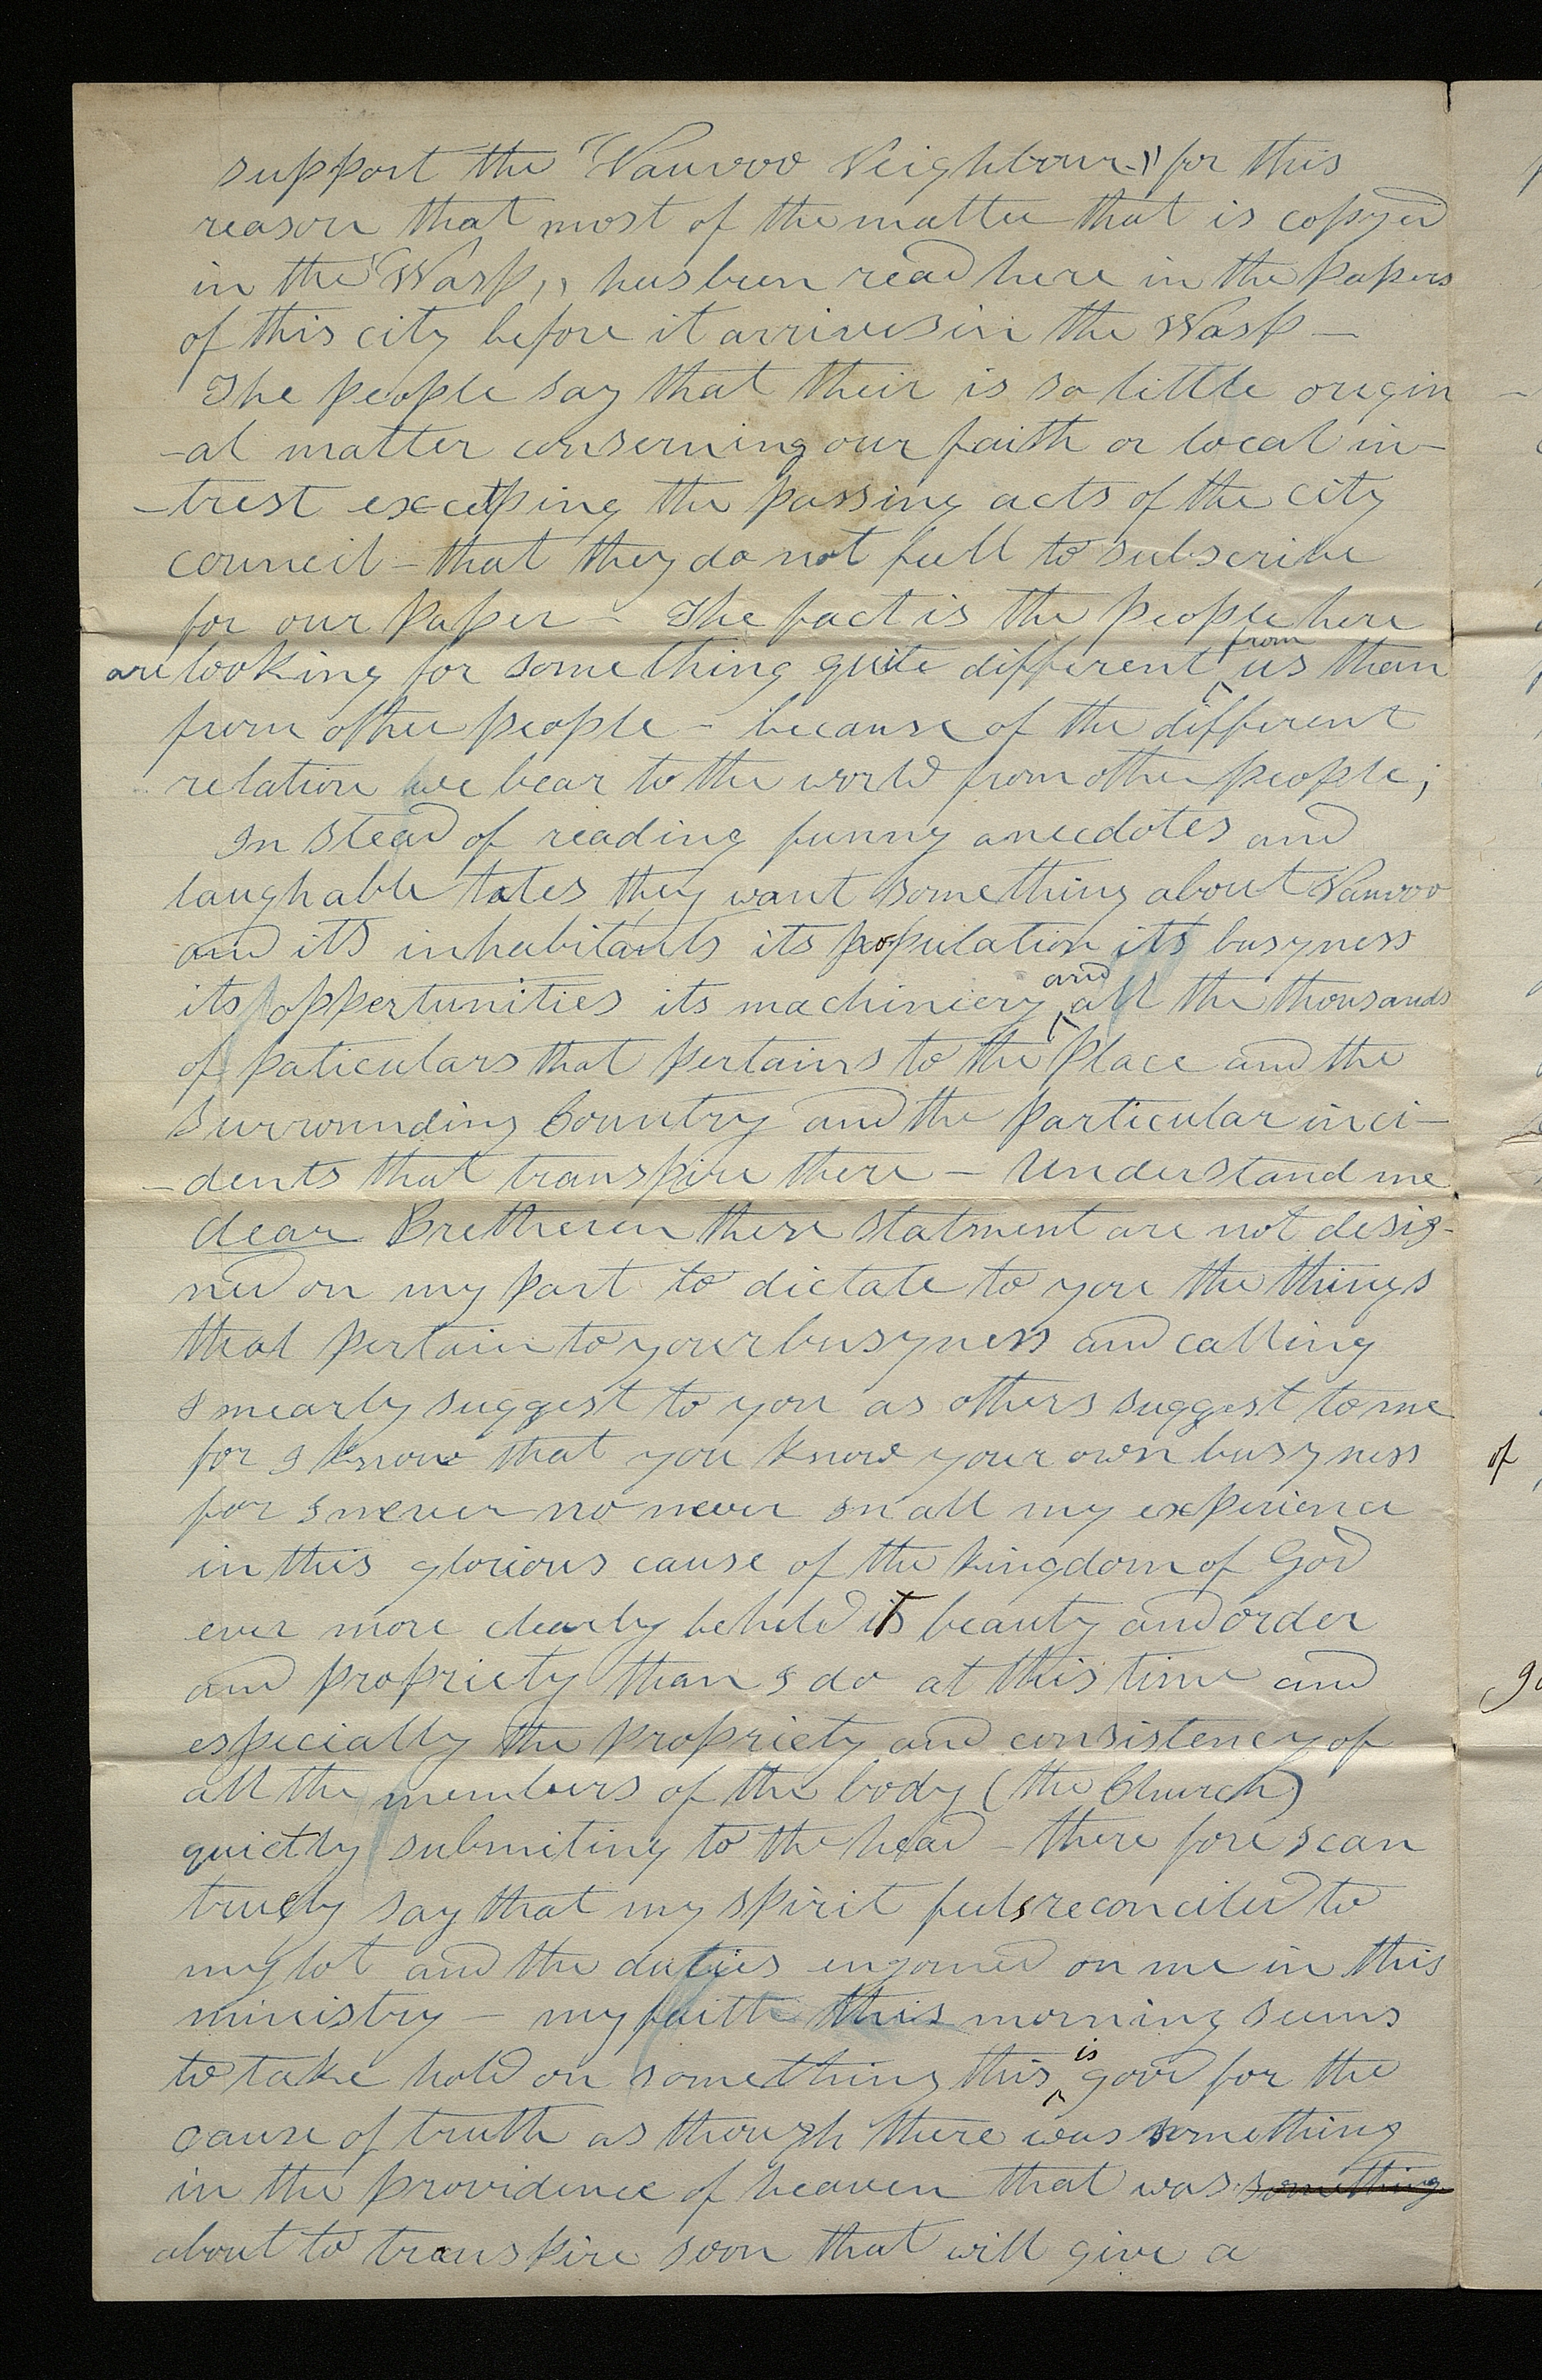 support the "Nauvoo Neighbour," for this
reason that most of the matter that is copyed
in the "Wasp,, has been read here in the papers
of this city before it arrives in the Wasp —
The people say that their is so little origin
-al matter conserning our faith or local in-
-trest excepting the passing acts of the city
council - that they do not feell to subscribe
for our paper - The fact is the people here
are looking for something quite different ^from us than
from other people - because of the different
relation we bear to the world from other people;
In stead of reading funny anecdotes and
laughable tales they want something about Nauvoo
and its inhabitants its population its busyness
its oppertunities its machiniery ^and all the thousands
of paticulars that pertains to the place and the
surrounding Country and the particular inci-
-dents that transpire there - Understand me
dear Bretheren these statment are not desig-
ned on my part to dictate to you the things
that pertain to your busyness and calling
I mearly suggest to you as others suggest to me
for I know that you know your own busyness
for I never no never in all my experience
in this glorious cause of the kingdom of God
ever more clearly beheld its beauty and order
and propriety than I do at this time and
especially the propriety and consistency of
all the members of the body (the Church)
quietly submiting to the head - there fore I can
truely say that my spirit feels reconciled to
my lot and the duties enjoined on me in this
ministry - my faith this morning seems
to take hold on something this ^is good for the
cause of truth as though there was something
in the providence of heaven that was something
about to transpire soon that will give a
of